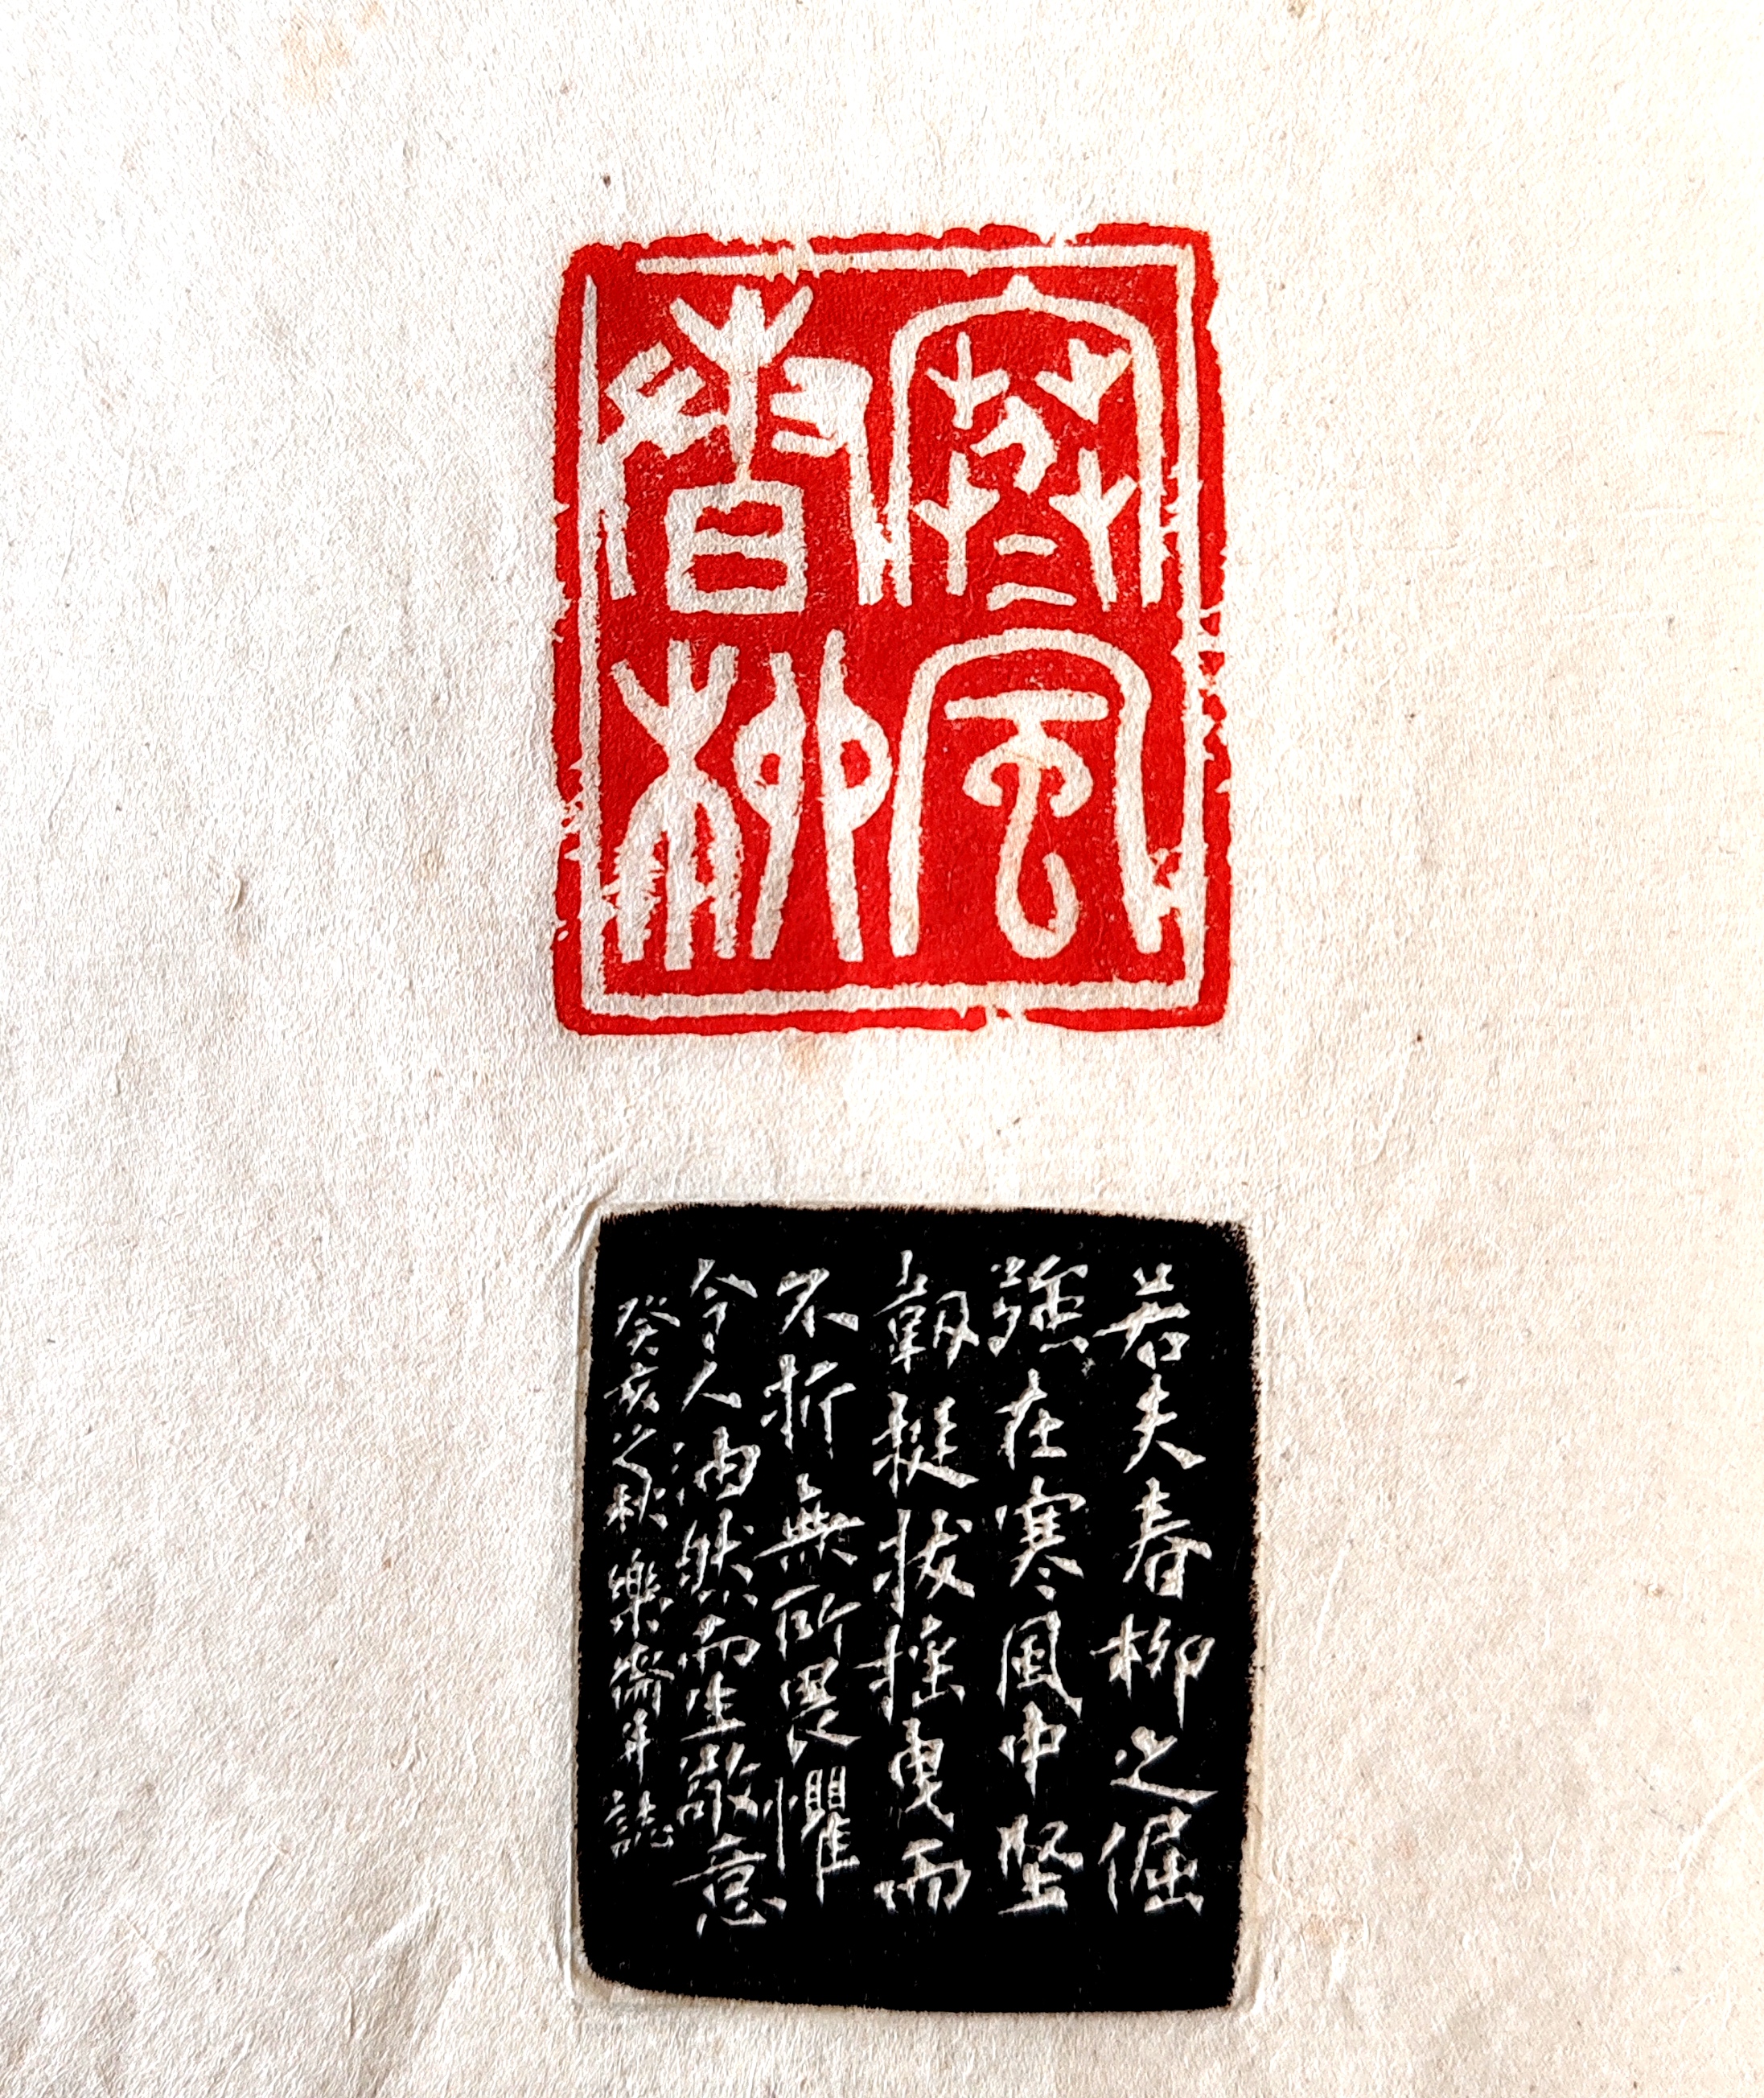 寒風
春柳
若夫春柳之倔
強在寒風中坚
韌挺拔搖曳而
不折無所畏懼
令人油然而生敬意
癸亥之秋樂齋并誌